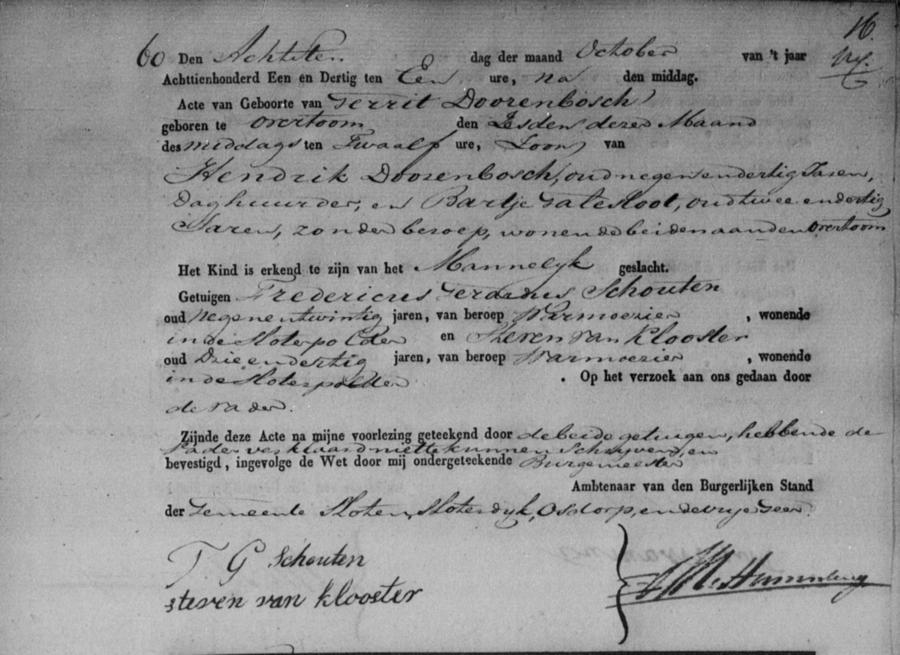 16
60 Den Achtsten dag der maand October van 't jaar
Achttienhonderd Een en Dertig ten Een ure, na den middag.
Acte van Geboorte van Gerrit Doorenbosch
geboren te overtoom den Zesden dezer Maand
des middags ten Twaalf ure, Zoon van
Hendrik Doorenbosch, oud negen en dertig Jaren,
daghuurder, en Bartje Tateloot, oud twee en dertig
Jaren, zonder beroep, wonende beiden aan den overtoom
Het Kind is erkend te zijn van het Mannelyk geslacht.
Getuigen Fredericus Gerardus Schouten
oud Negenentwintig jaren, van beroep Warmoezier, wonende
in de Sloterpolder en Steven van Klooster
oud Drieendertig jaren, van beroep Warmoezier, wonende
in de Sloterpolder. Op het verzoek aan ons gedaan door
de vader.
Zijnde deze Acte na mijne voorlezing geteekend door de beide getuigen, hebbende de
Vader verklaard niet te kunnen Schryven, en
bevestigd, ingevolge de Wet door mij ondergeteekende Burgemeester
Ambtenaar van den Burgerlijken Stand
der Gemeente Sloten, Sloterdyk, Osdorp, en de vrije Geer.
F G Schouten
steven van klooster